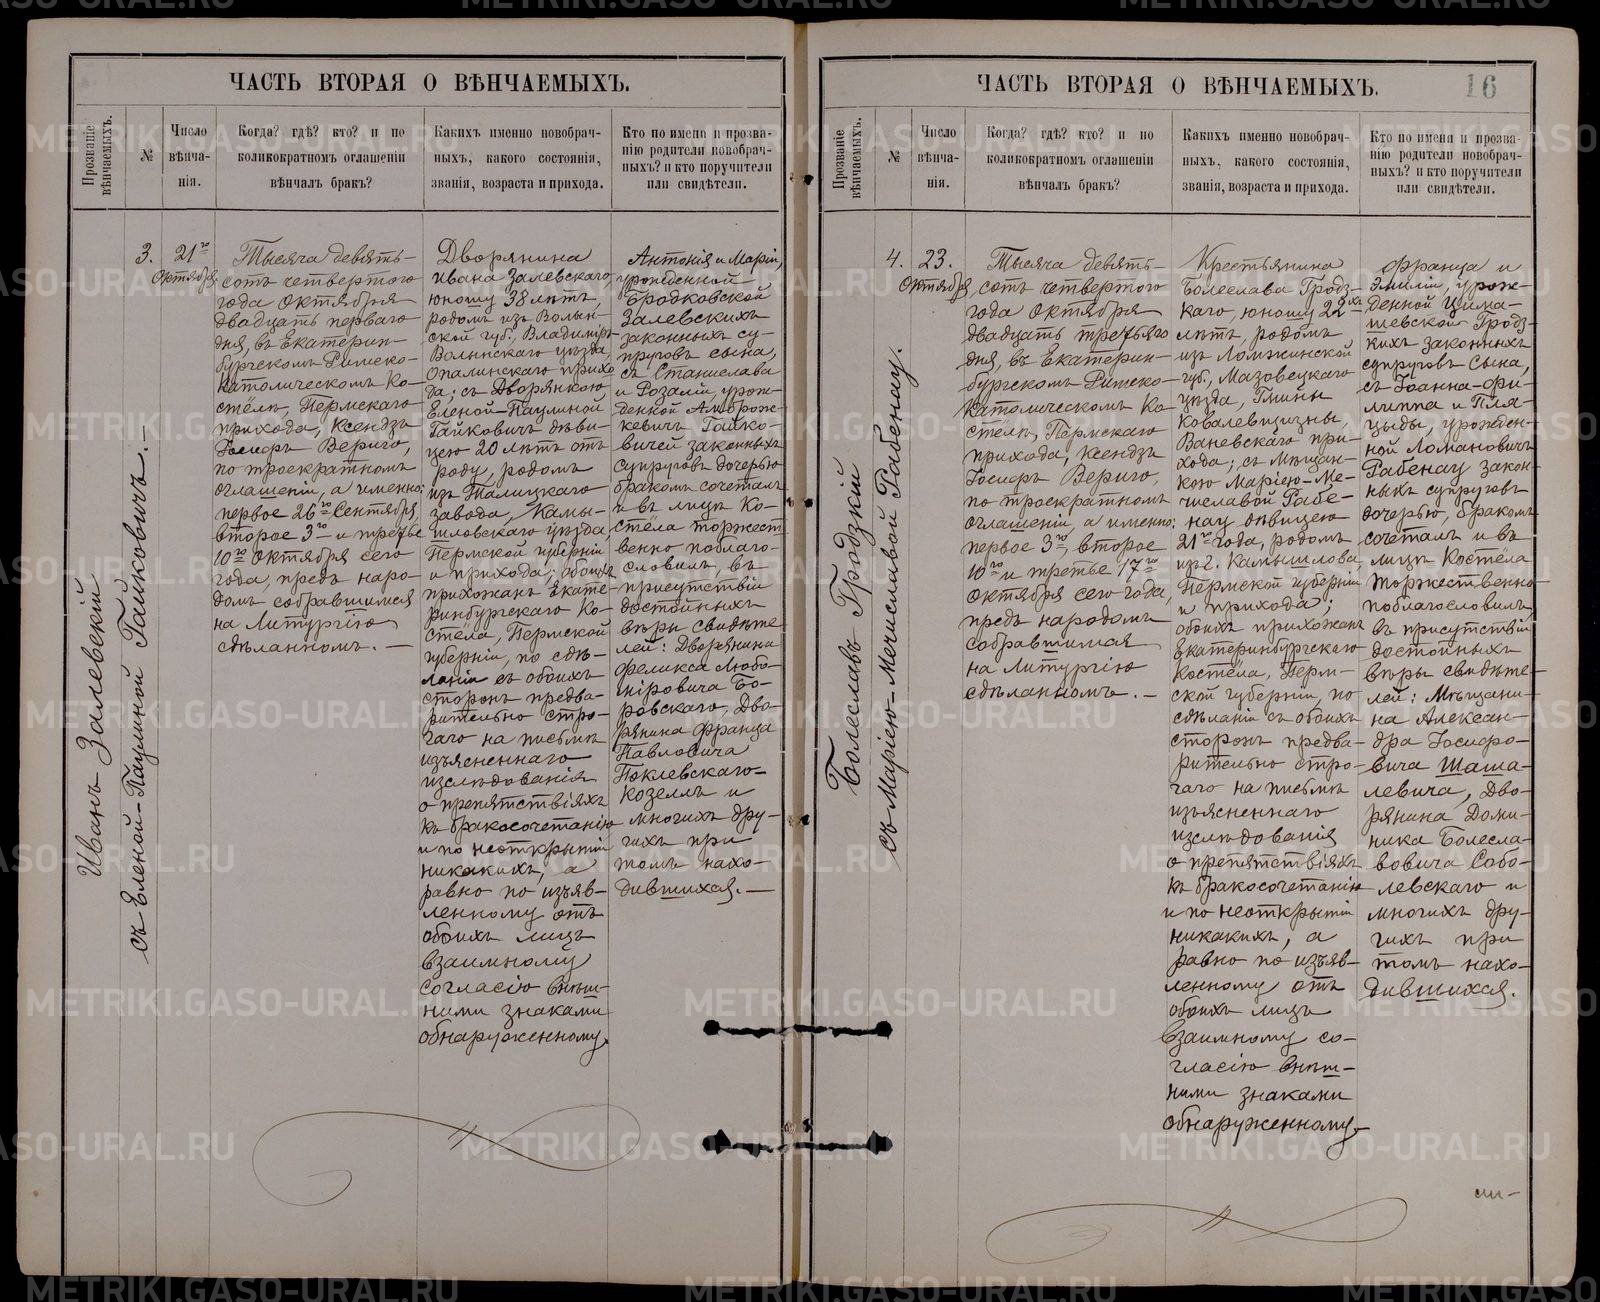 ЧАСТЬ ВТОРАЯ О ВѢНЧАЕМЫХЪ.
Прозваніе
вѣнчаемыхъ.
№
Число
вѣнча-
нія.
Когда? гдѣ? кто? и по
коликократномъ оглашеніи
вѣнчалъ бракъ?
Какихъ именно новобрач-
ныхъ, какого состоянія,
званія, возраста и прихода.
Кто по имени и прозва-
нію родители новобрач-
ныхъ? и кто поручители
или свидѣтели.
Иванъ Залевскій
съ Еленой-Паулиной Гайковичъ.—
3.
21го
Октября
Тысяча девять-
сотъ четвертого
года Октября
двадцать перваго
дня, въ Екатерин-
бургскомъ Римско-
Католическомъ Ко-
стёлѣ, Пермскаго
прихода, Ксендзъ
Іосифъ Вериго,
по троекратномъ
оглашеніи, а именно:
первое 26го Сентября,
второе 3го и третье
10го Октября сего
года, предъ наро-
домъ собравшимся
на Литургію
сдѣланномъ. —
Дворянина
Ивана Залевскаго,
юношу 38 лѣтъ,
родомъ изъ Волын-
ской губ., Владиміръ-
Волынскаго уѣзда,
Опалинскаго прихо-
да; съ Дворянкою
Еленой-Паулиной
Гайковичъ дѣви-
цею 20 лѣтъ отъ
роду, родомъ
изъ Талицкаго
завода, Камы-
шловскаго уѣзда,
Пермской губерніи
и прихода; обоихъ
прихожанъ Екате-
ринбургскаго Ко-
стёла, Пермской
губерніи, по сдѣ-
ланіи съ обоихъ
сторонъ предва-
рительно стро-
гаго на письмѣ
изъясненнаго
изслѣдованія
о препятствіяхъ
къ бракосочетанію
и по неоткрытіи
никакихъ, а
равно по изъяв-
ленному отъ
обоихъ лицъ
взаимному
согласію внѣш-
ними знаками
обнаруженному.
Антонія и Маріи,
урожденной
Бродковской
Залевскихъ
законныхъ су-
пруговъ сына,
съ Станислава
и Розаліи, урож-
денной Амброж-
кевичъ Гайко-
вичей законныхъ
супруговъ дочерью
бракомъ сочеталъ
и въ лицѣ Ко-
стёла торжест-
венно поблаго-
словилъ, въ
присутствіи
достойныхъ
вѣры свидѣте-
лей: Дворянина
Феликса Любо-
міровича Бо-
ровскаго, Дво-
рянина Франца
Павловича
Поклевскаго-
Козеллъ и
многихъ дру-
гихъ при
томъ нахо-
дившихся. —
ЧАСТЬ ВТОРАЯ О ВѢНЧАЕМЫХЪ.
16
Прозваніе
вѣнчаемыхъ.
№
Число
вѣнча-
нія.
Когда? гдѣ? кто? и по
коликократномъ оглашеніи
вѣнчалъ бракъ?
Какихъ именно новобрач-
ныхъ, какого состоянія,
званія, возраста и прихода.
Кто по имени и прозва-
нію родители новобрач-
ныхъ? и кто поручители
или свидѣтели.
Болеславъ Гродзкій
съ Маріею-Мечиславой Рабенау.
4.
23.
Октября
Тысяча девять-
сотъ четвертого
года Октября
двадцать третьяго
дня, въ Екатерин-
бургскомъ Римско-
Католическомъ Ко-
стёлѣ, Пермскаго
прихода, Ксендзъ
Іосифъ Вериго,
по троекратномъ
оглашеніи, а именно:
первое 3го, второе
10го и третье 17го
Октября сего года,
предъ народомъ
собравшимся
на Литургію
сдѣланномъ. —
Крестьянина
Болеслава Гродз-
каго, юношу 22хъ
лѣтъ, родомъ
изъ Ломжинской
губ., Мазовецкаго
уѣзда, Гмины
Ковалевщизны,
Ваневскаго при-
хода; съ Мѣщан-
кою Маріею-Ме-
числавой Рабе-
нау дѣвицею
21го года, родомъ
изъ г. Камышлова,
Пермской губерніи
и прихода;
обоихъ прихожанъ
Екатеринбургскаго
Костёла, Перм-
ской губерніи, по
сдѣланіи съ обоихъ
сторонъ предва-
рительно стро-
гаго на письмѣ
изъясненнаго
изслѣдованія
о препятствіяхъ
къ бракосочетанію
и по неоткрытіи
никакихъ, а
равно по изъяв-
ленному отъ
обоихъ лицъ
взаимному со-
гласію внѣш-
ними знаками
обнаруженному.—
Франца и
Эмиліи, урож-
денной Цима-
шевской Гродз-
кихъ законныхъ
супруговъ Сына,
съ Іоанна-Фи-
липпа и Пля-
циды, урожден-
ной Ломановичъ
Рабенау закон-
ныхъ супруговъ
дочерью, бракомъ
сочеталъ и въ
лицѣ Костёла
торжественно
поблагословилъ
въ присутствіи
достойныхъ
вѣры свидѣте-
лей: Мѣщани-
на Алексан-
дра Іосифо-
вича Шаша-
левича, Дво-
рянина Доми-
ника Болесла-
вовича Собо-
левскаго и
многихъ дру-
гихъ при
томъ нахо-
дившихся.
METRIKI.GASO-URAL.RU